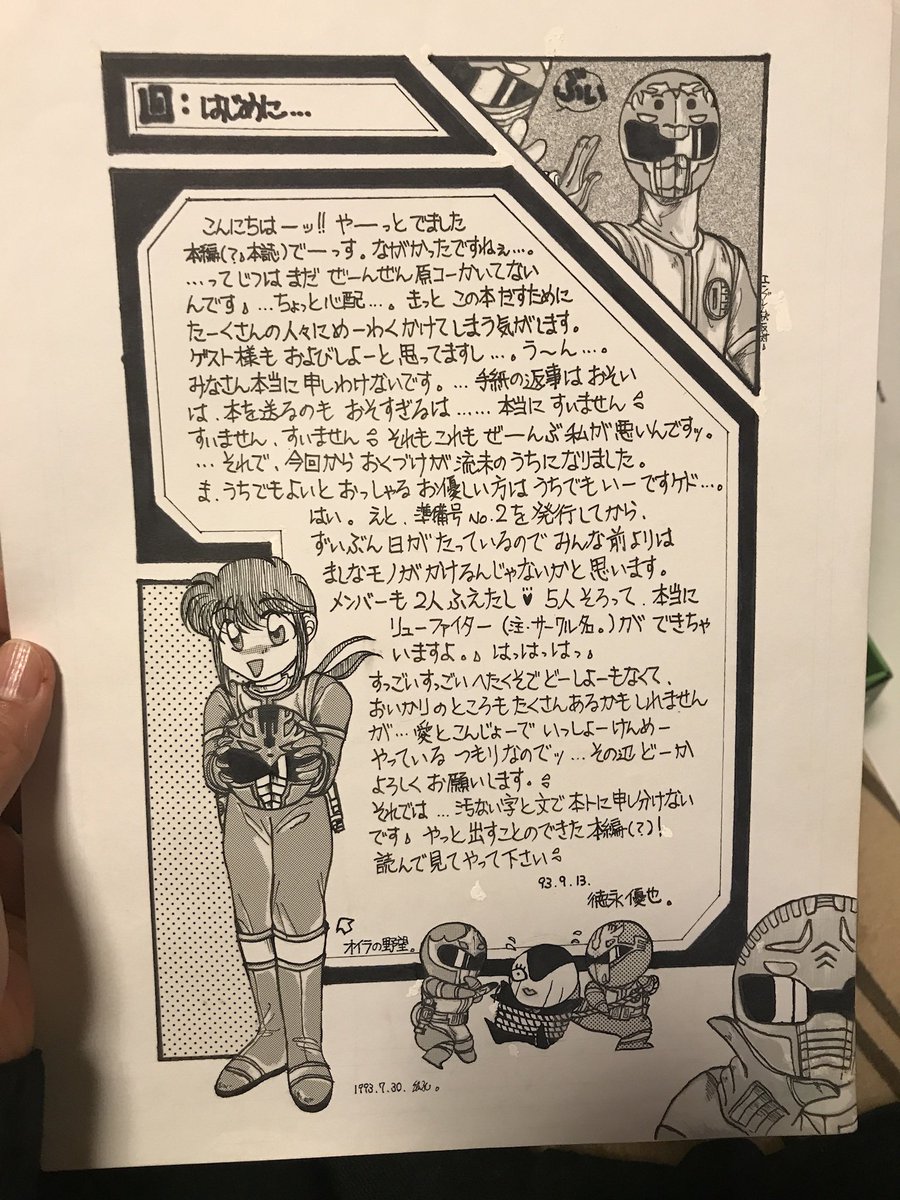 ：はじめに…
ぶい
こんにちはーッ!! やーっとでました
本編(て。本誌)でーっす。ながかったですねぇ…。
…ってじつはまだ ぜーんぜん原コーかいてない
んです。…ちょっと心配…。きっと この本だすために
たーくさんの人々にめーわくかけてしまう気がします。
ゲスト様も およびしよーと思ってますし…。う〜ん…。
みなさん本当に申しわけないです。… 手紙の返事は おそい
は、本を送るのも おそすぎるは …… 本当に すいません
すいません、すいません それもこれも ぜーんぶ私が悪いんですッ。
… それで、今回から おくづけが 流未のうちになりました。
ま、うちでもよいと おっしゃる お優しい方は うちでもいーですケド…。
はい。えと、準備号No.2を発行してから、
ずいぶん日がたっているので みんな前よりは
ましなモノが かけるんじゃないかと思います。
メンバーも 2人ふえたし 5人そろって、本当に
リューファイター（注・サークル名。）が できちゃ
いますよ。♪ はっはっはっ♪
すっごいすっごいへたくそで どーしよーもなくて、
おいかりのところもたくさんあるかもしれません
が… 愛とこんじょーで いっしょーけんめー
やっている つもりなのでッ … その辺 どーか
よろしく お願いします。
それでは … 汚ない字と文で本トに申し分けない
です♪ やっと出すことのできた 本編(て。)！
読んで見てやって下さい
93.9.13.
徳永優也。
オイラの野望。
1993.7.30.